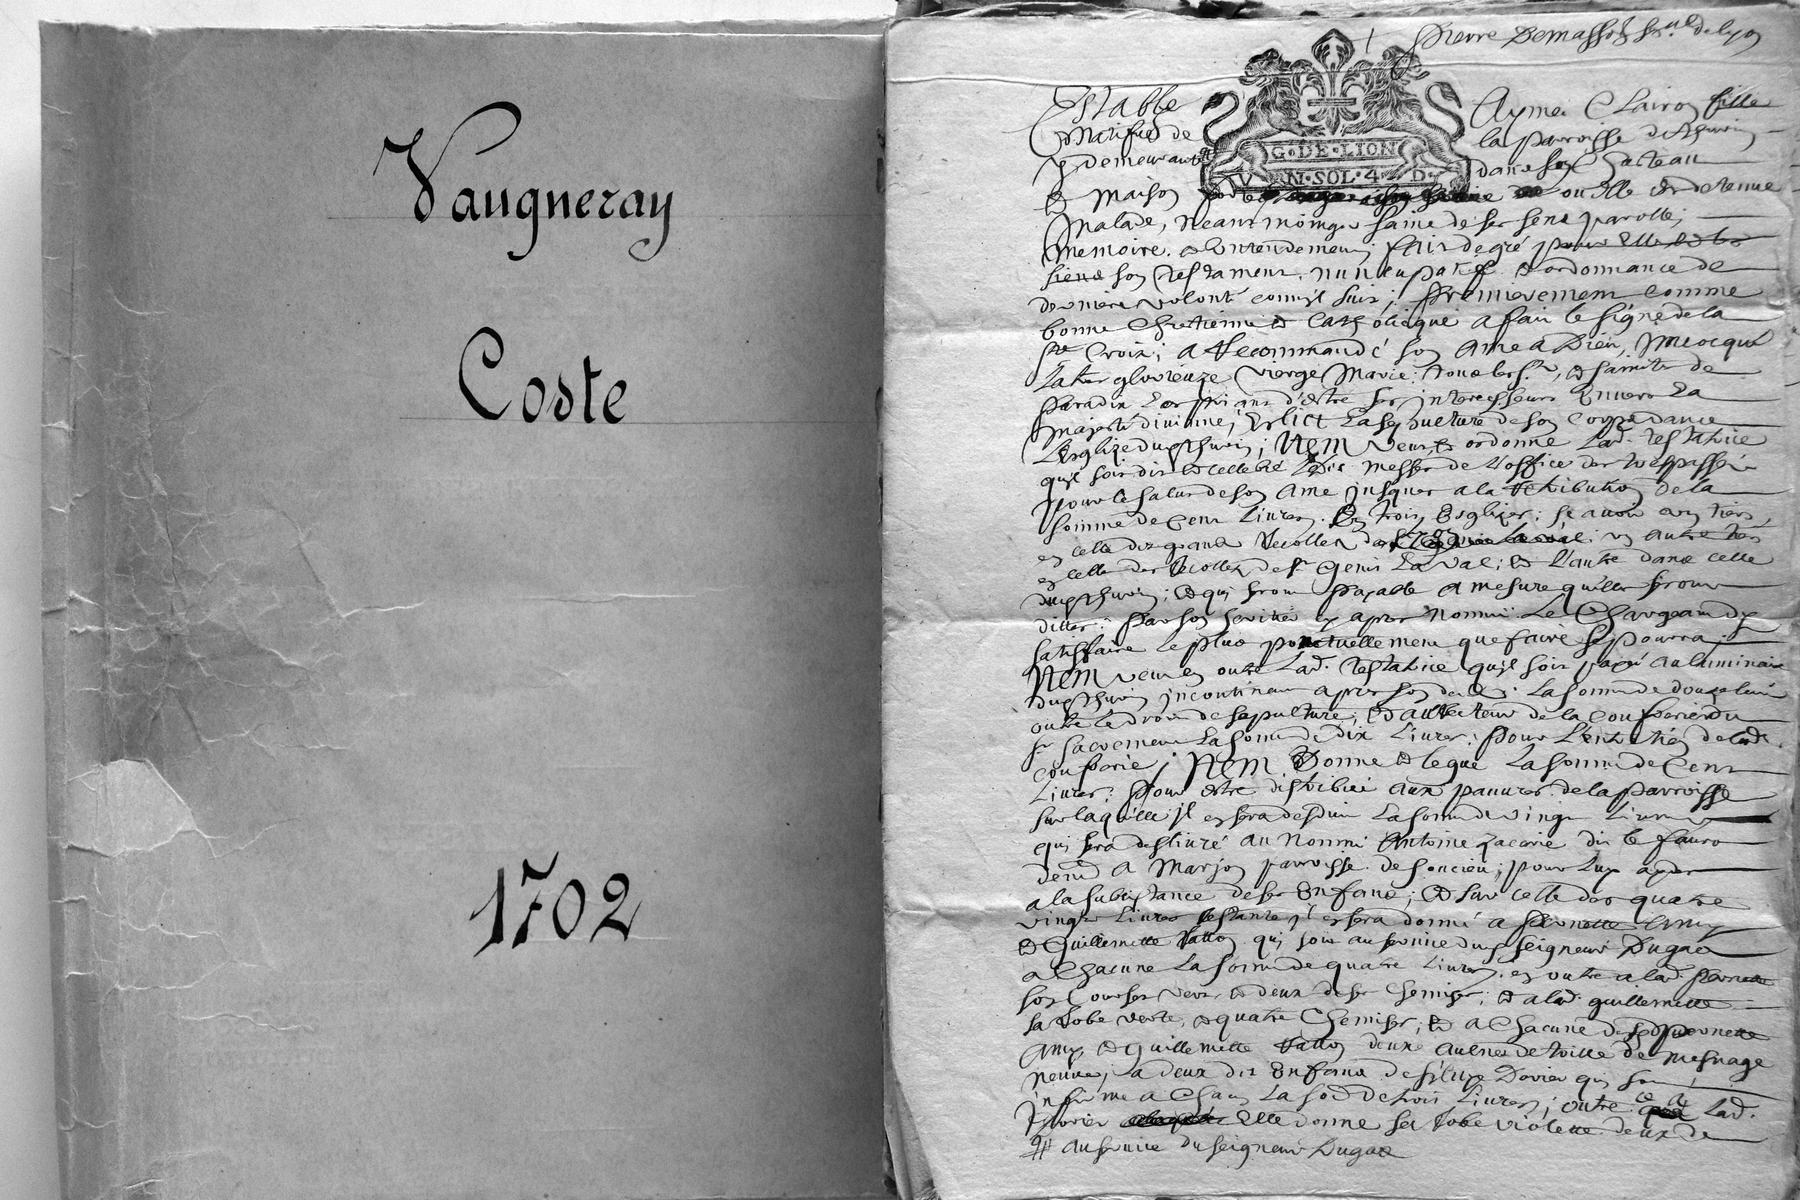 Vaugneray
Coste
1702
Pierre Demasso de Lyon
Establie Aymée Clairon fille
Natifve de la parroisse de Thurin
y demeurante dans son Chateau
G·DE·LION
VN·SOL·4·D·
& maison ou elle est detenue
Malade, neantmoings saine de ses sens parolle,
Memoire & Entendement, fait de gré pour Elle & les
siens son Testament nuncupatif & ordonnance de
derniere volonté comm'il suit; Premierement comme
bonne Chretienne & Catholicque a fait le signe de la
Ste Croix; a Recommandé son Ame a Dieu, Invocqué
La tres glorieuze Vierge Marie, tous les Sts & saintes de
Paradix Les priant d'estre ses intercesseurs Envers La
Majesté divinne; Eslict La sepulture de son Corps dans
L'Esglize dud Thurin; Item Veut & ordonne Lad. testatrice
qu'il soit dit & cellebré des messes de L'office des trespassés
pour le salut de son Ame jusques a la Retribution de la
somme de Cent Livres. En trois Esglizes; scavoir un tiers
en celle des grands Recollets de un autre tiers
en celle des Recollets de St Genis Laval; & L'autre dans celle
dud Thurin; & qui seront payable a mesure qu'elles seront
dittes; Par son heritier cy apres Nommé Le Chargeant d'y
satisfaire Le plus ponctuellement que faire se pourra;
Item veut en outre Lad. Testatrice qu'il soit payé au luminaire
dud Thurin incontinant apres son decés La somme de douze livres
outre Le droit de sepulture; & au Recteur de la Confrerie du
St Sacrement La somme de dix Livres; Pour L'entretien de lad.
confrerie; Item Donne & legue La somme de Cent
Livres; Pour Estre distribüé aux pauvres de la Parroisse
sur laquelle il en sera desduit La somme de vingt Livres
qui sera deslivré au nommé Antoine Zacarie dit le fauro
demt a Marjon parroisse de soucieu; pour Luy ayder
a la subsistance de ses Enfans; & sur celle des quatre
vingts Livres restante il en sera donné a Pernette Amy
& Guillemette Vatton qui sont au service dud seigneur Dugas
a Chacune La somme de quatre Livres, en outre a lad. Pernette
son verte & deux de ses Chemises; & a lad. guillemette
sa Robe verte, & quatre Chemises; & a Chacune desd pernette
Amy & Guillemette Vatton deux aulnes de toille de mesnage
neuve; a deux des Enfans de
a Chacun La somme de trois Livres; outre ce a Lad.
Elle donne sa Robe violette deux de
au service du seigneur Dugas